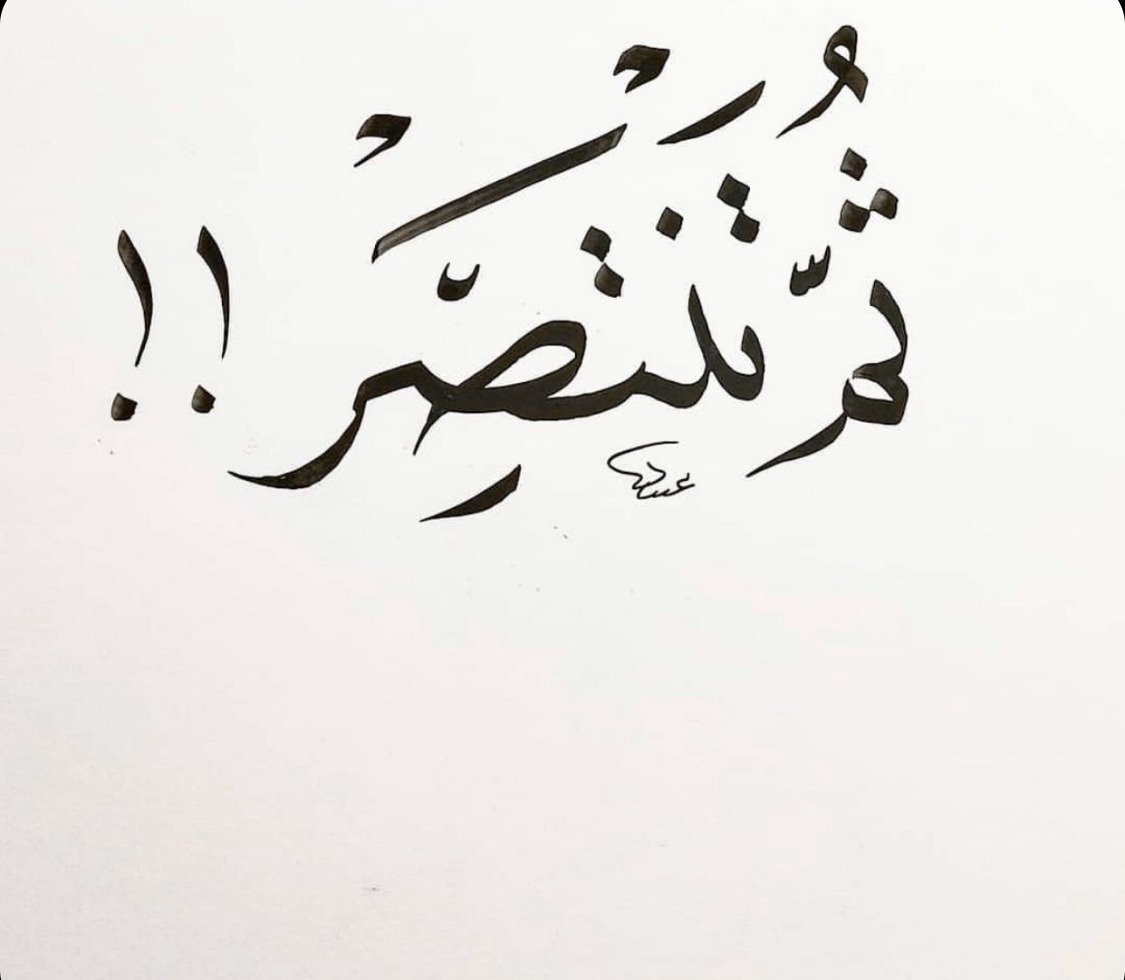 ثُمَّ تَنْتَصِرْ !!